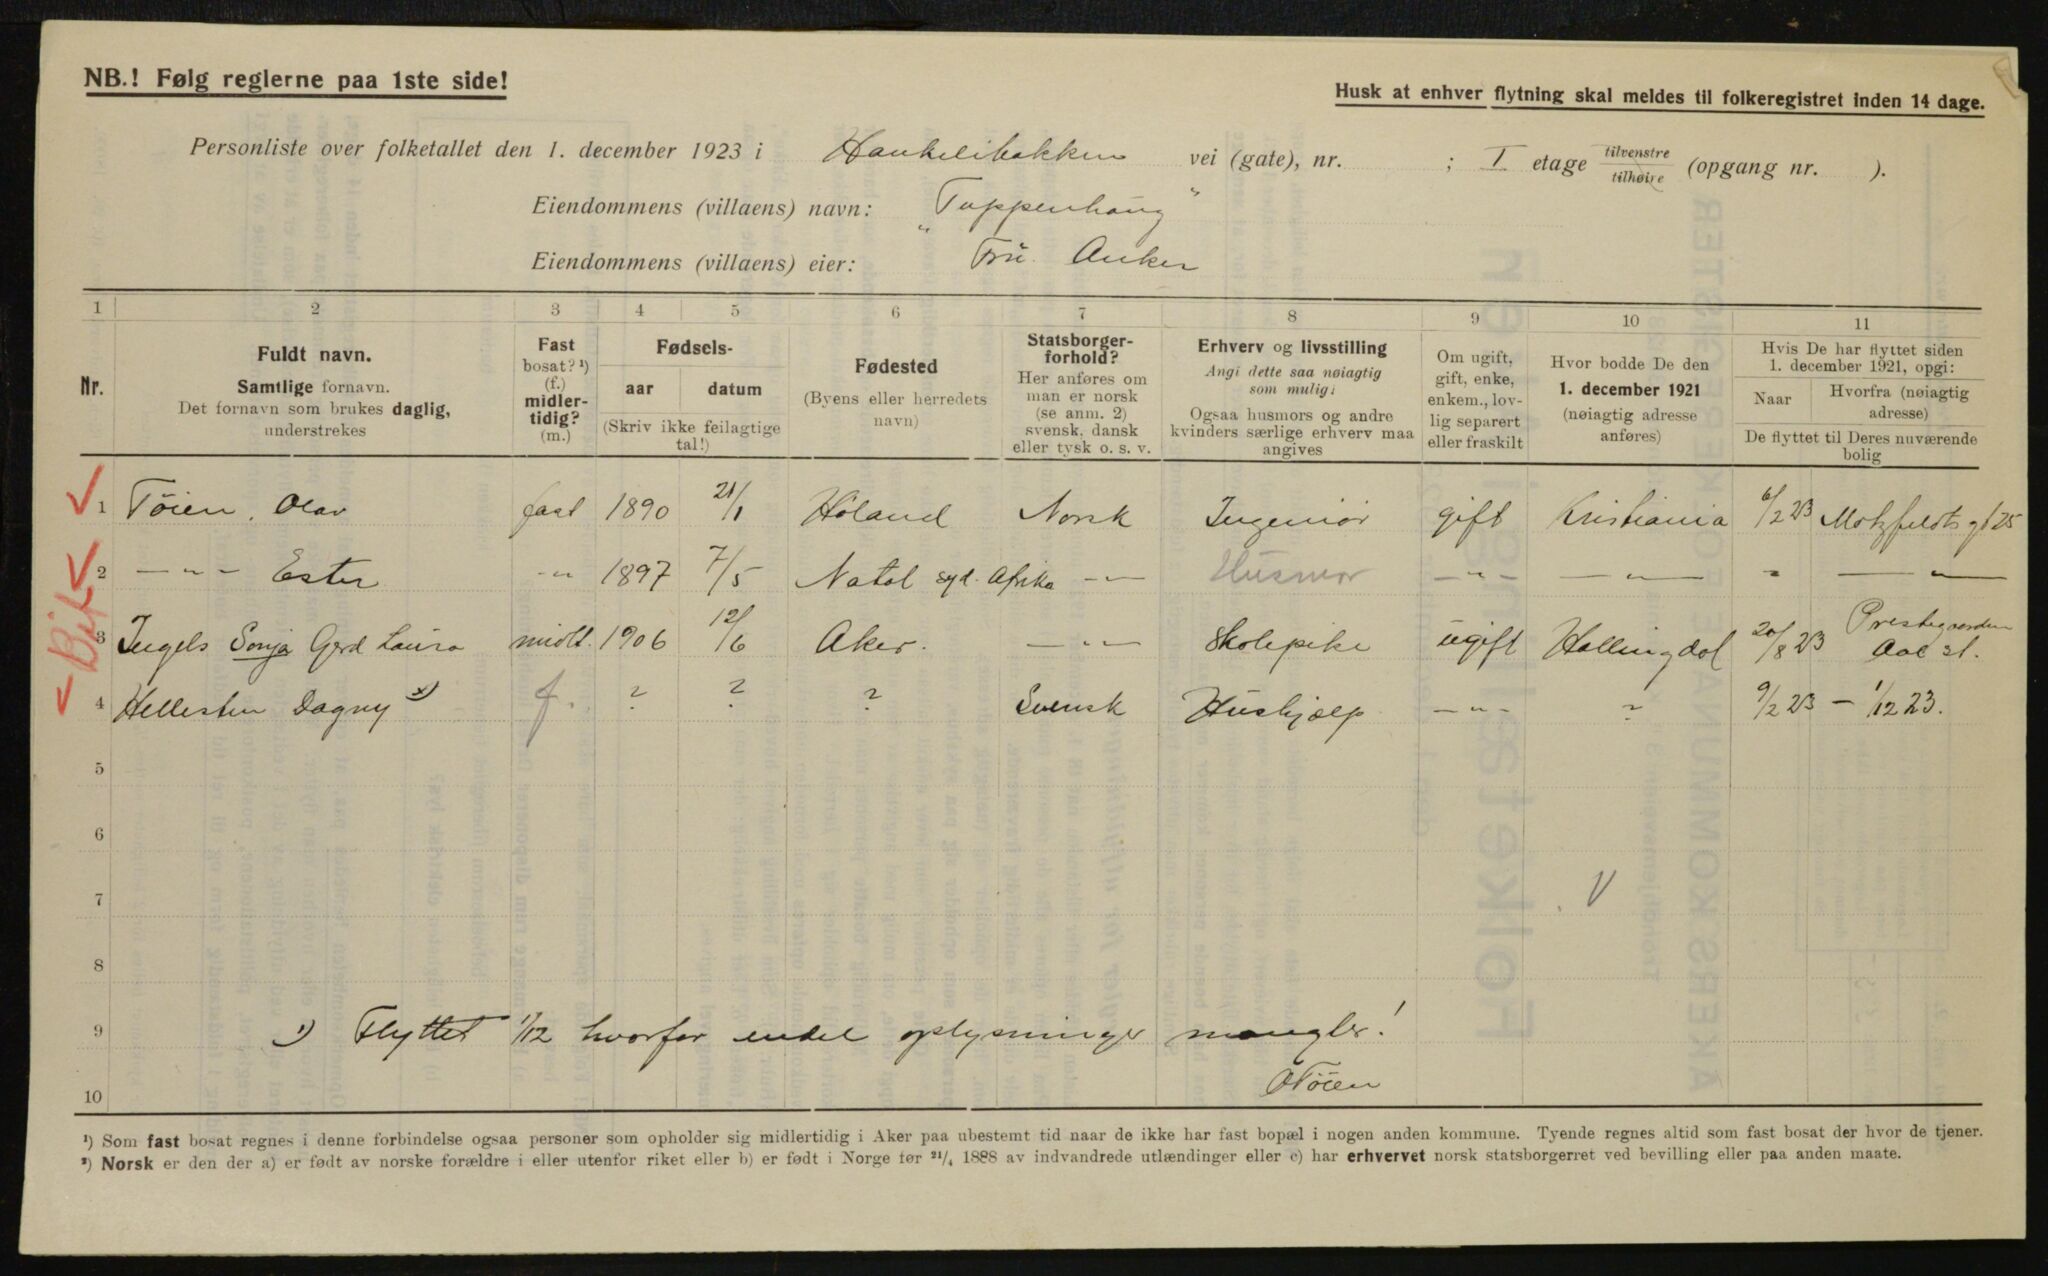 NB.! Følg reglerne paa 1ste side!
Husk at enhver flytning skal meldes til folkeregistret inden 14 dage.
Personliste over folketallet den 1. december 1923 i Haukelibakken vei (gate), nr. ; I etage tilvenstre tilhøire (opgang nr. ).
Eiendommens (villaens) navn: "Tuppenhaug"
Eiendommens (villaens) eier: Fru. Anker
1 2 3 4 5 6 7 8 9 10 11
Nr.
Fuldt navn.
Samtlige fornavn.
Det fornavn som brukes daglig,
understrekes
Fast
bosat? ¹)
(f.)
midler-
tidig?
(m.)
Fødsels-
aar datum
(Skriv ikke feilagtige
tal!)
Fødested
(Byens eller herredets
navn)
Statsborger-
forhold?
Her anføres om
man er norsk
(se anm. 2)
svensk, dansk
eller tysk o. s. v.
Erhverv og livsstilling
Angi dette saa nøiagtig
som mulig;
Ogsaa husmors og andre
kvinders særlige erhverv maa
angives
Om ugift,
gift, enke,
enkem., lov-
lig separert
eller fraskilt
Hvor bodde De den
1. december 1921
(nøiagtig adresse
anføres)
Hvis De har flyttet siden
1. december 1921, opgi:
Naar
Hvorfra (nøiagtig
adresse)
De flyttet til Deres nuværende
bolig
1 Tøien, Olav fast 1890 21/1 Høland Norsk Ingeniør gift Kristiania 6/2 23 Motzfeldts gt 25
2 — " — Ester — " — 1897 7/5 Natal syd. Afrika — " — Husmor — " — — " — " — " —
3 Ingels Sonja Gerd Laura midlt. 1906 12/6 Aker. — " — Skolepike ugift Hallingdal 20/8 23 Prestegaarden Aal st.
4 Hellesten Dagny ¹) f. ? ? ? Svensk Hushjælp — " — ? 9/2 23 — 1/12 23.
5
6
7 V
8
9 ¹) Flyttet 1/12 hvorfor endel oplysninger mangler!
OTöien
10
¹) Som fast bosat regnes i denne forbindelse ogsaa personer som opholder sig midlertidig i Aker paa ubestemt tid naar de ikke har fast bopæl i nogen anden kommune. Tyende regnes altid som fast bosat der hvor de tjener.
²) Norsk er den der a) er født av norske forældre i eller utenfor riket eller b) er født i Norge før 21/4 1888 av indvandrede utlændinger eller c) har erhvervet norsk statsborgerret ved bevilling eller paa anden maate.